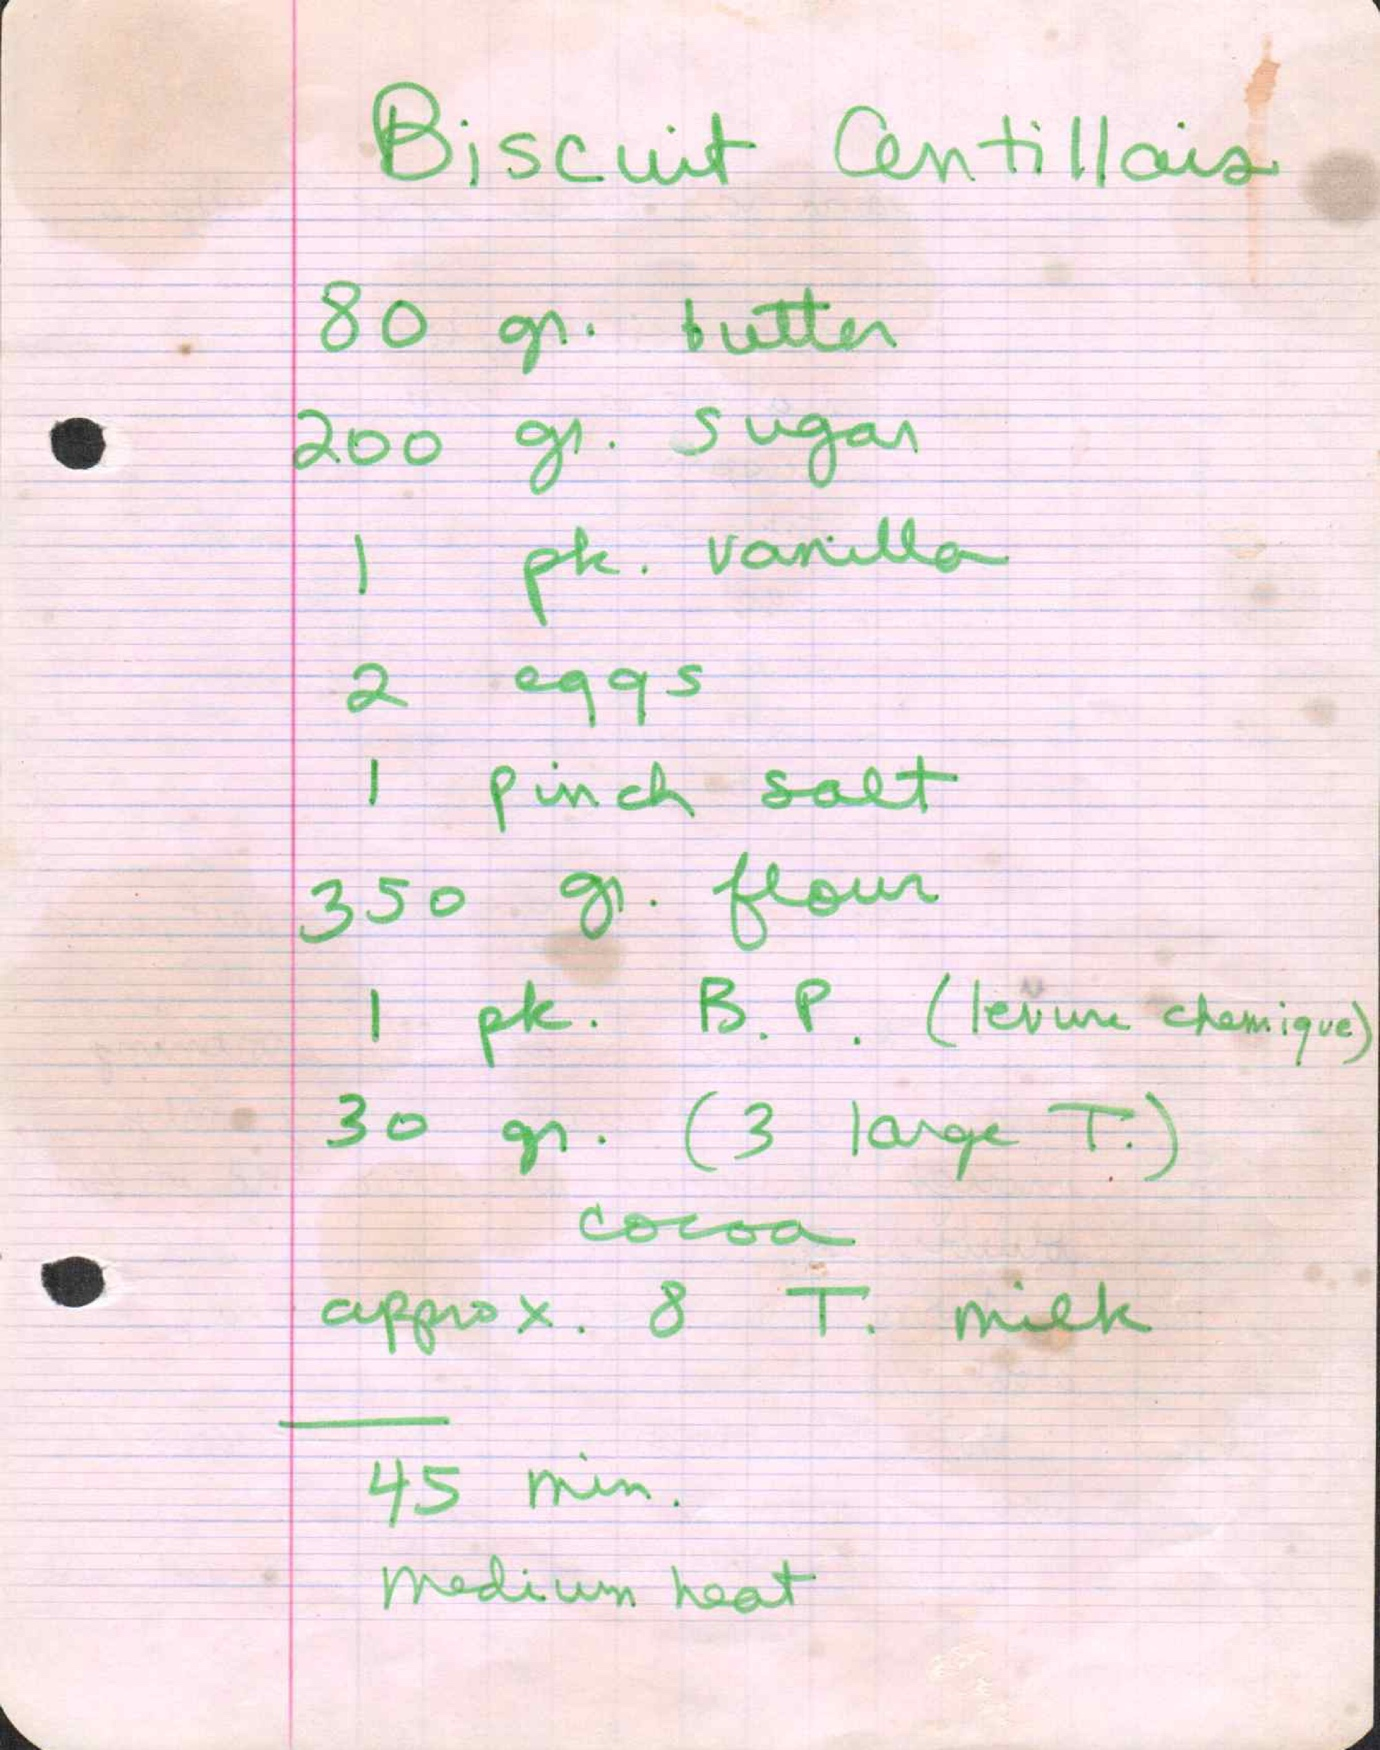 Biscuit Centillais
80 gr. butter
200 gr. sugar
1 pk. vanilla
2 eggs
1 pinch salt
350 gr. flour
1 pk. B.P. (levure chemique)
30 gr. (3 large T.)
cocoa
approx. 8 T. milk
45 min.
medium heat